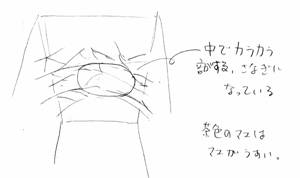 中でカラカラ
音がする、さなぎに
なっている
茶色のマユは
マユがうすい。